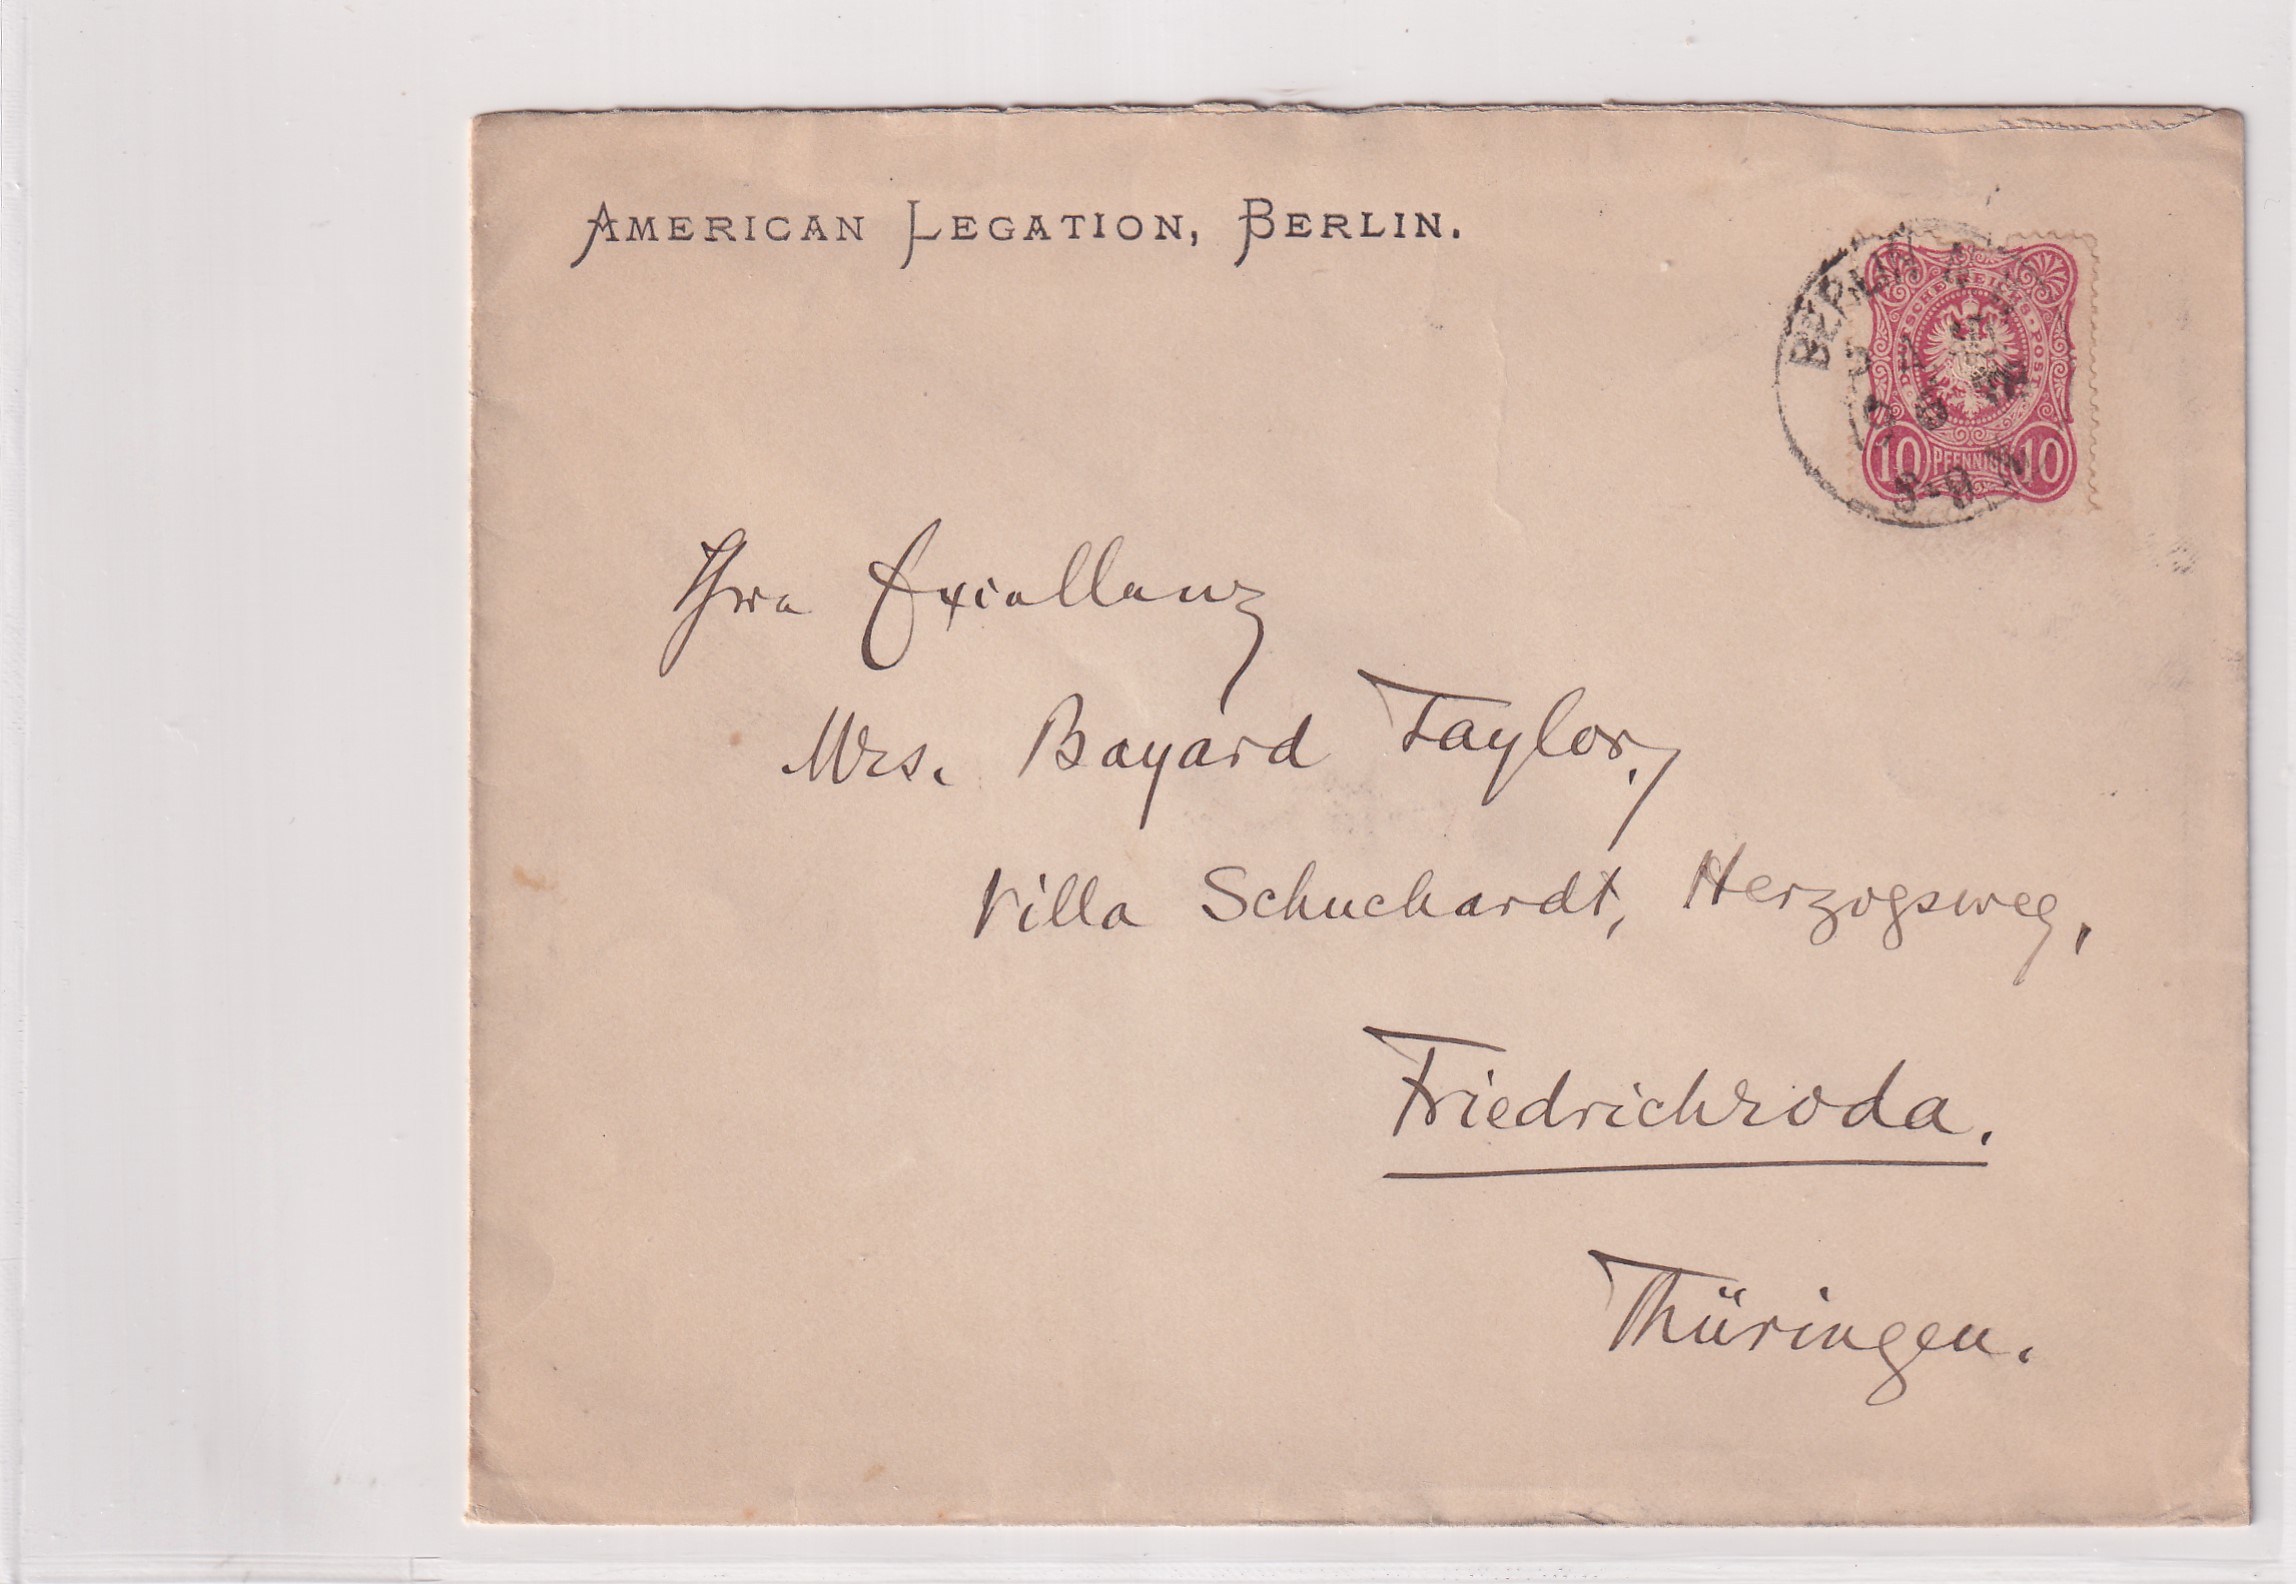 AMERICAN LEGATION, BERLIN.
BERLIN
DEUTSCHE REICHS-POST
10 PFENNIG 10
8-9 N
Ihre Excellenz
Mrs. Bayard Taylor,
Villa Schuchardt, Herzogsweg,
Friedrichroda.
Thüringen.